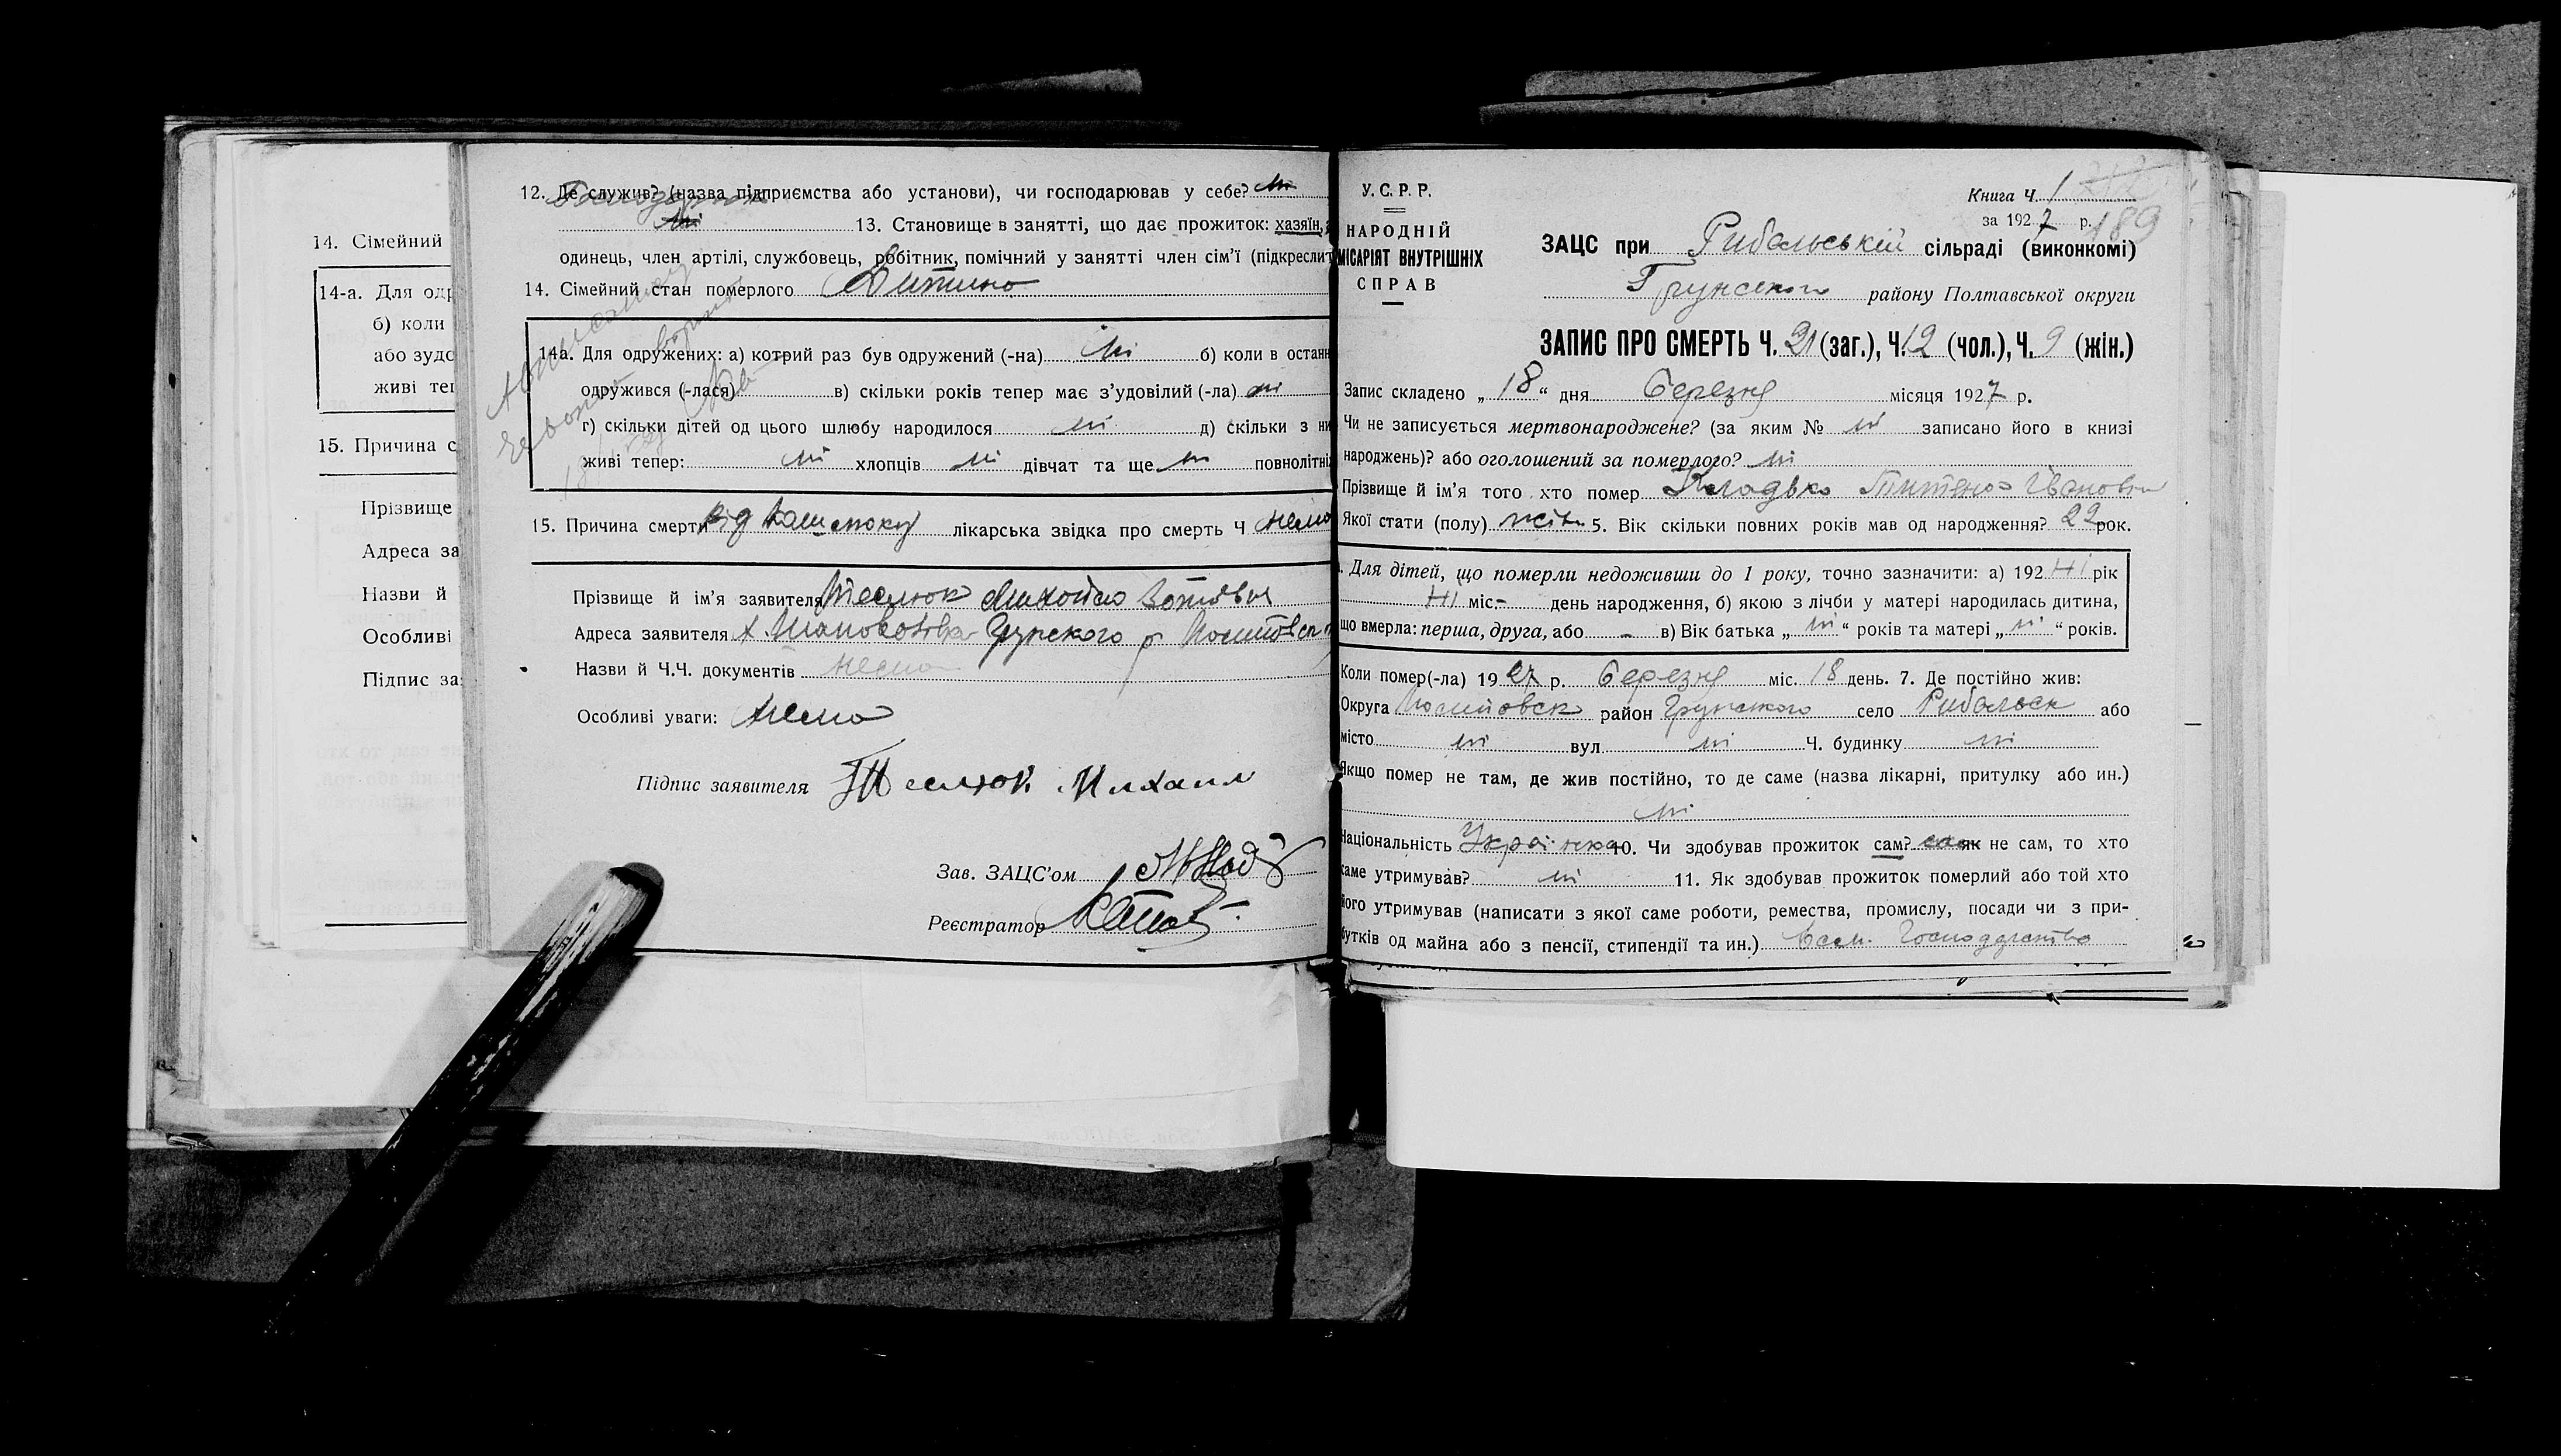 14. Сімейний
14-а. Для одр
б) коли
або зудо
живі теп
15. Причина с
Прізвище
Адреса за
Назви й
Особливі
Підпис за
12. Де служив? (назва підприємства або установи), чи господарював у себе? ні
ні 13. Становище в занятті, що дає прожиток: хазяїн,
одинець, член артілі, службовець, робітник, помічний у занятті член сім’ї (підкреслит
14. Сімейний стан померлого Дитина
14а. Для одружених: а) котрий раз був одружений (-на) ні б) коли в останн
одружився (-лася) в) скільки років тепер має з’удовілий (-ла) ні
г) скільки дітей од цього шлюбу народилося ні д) скільки з ни
живі тепер: ні хлопців ні дівчат та ще ні повнолітні
15. Причина смерти від кашлюку лікарська звідка про смерть Ч нема
Прізвище й ім’я заявителя Теслюк Михайло
Адреса заявителя х. Грунского р
Назви й Ч.Ч. документів нема
Особливі уваги: нема
Підпис заявителя Теслюк Михаил
Зав. ЗАЦС’ом
Реєстратор
У.С.Р.Р.
НАРОДНІЙ
МІСАРІЯТ ВНУТРІШНІХ
СПРАВ
Книга Ч. 1
за 1927 р. 189
ЗАЦС при Рибальській сільраді (виконкомі)
Грунского району Полтавської округи
ЗАПИС ПРО СМЕРТЬ Ч. 21 (заг.), Ч. 12 (чол.), Ч. 9 (жін.)
Запис складено „ 18 “ дня березня місяця 1927 р.
Чи не записується мертвонароджене? (за яким № ні записано його в книзі
народжень)? або оголошений за померлого? ні
Прізвище й ім’я того хто помер Кладько Івановна
Якої стати (полу) жін 5. Вік скільки повних років мав од народження? 22 рок.
. Для дітей, що померли недоживши до 1 року, точно зазначити: а) 192 ні рік
ні міс. - день народження, б) якою з лічби у матері народилась дитина,
що вмерла: перша, друга, або - в) Вік батька „ ні “ років та матері „ ні “ років.
Коли помер(-ла) 1927 р. березня міс. 18 день. 7. Де постійно жив:
Округа район Грунского село Рибальск або
місто ні вул ні Ч. будинку ні
Якщо помер не там, де жив постійно, то де саме (назва лікарні, притулку або ин.)
ні
Національність Українка 10. Чи здобував прожиток сам? як не сам, то хто
саме утримував? ні 11. Як здобував прожиток померлий або той хто
його утримував (написати з якої саме роботи, ремества, промислу, посади чи з при-
бутків од майна або з пенсії, стипендії та ин.) господарства